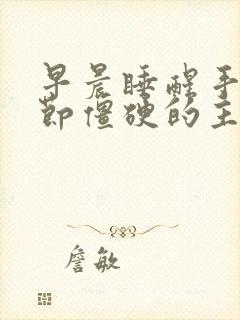 早晨睡醒手
节僵硬的主
詹敏